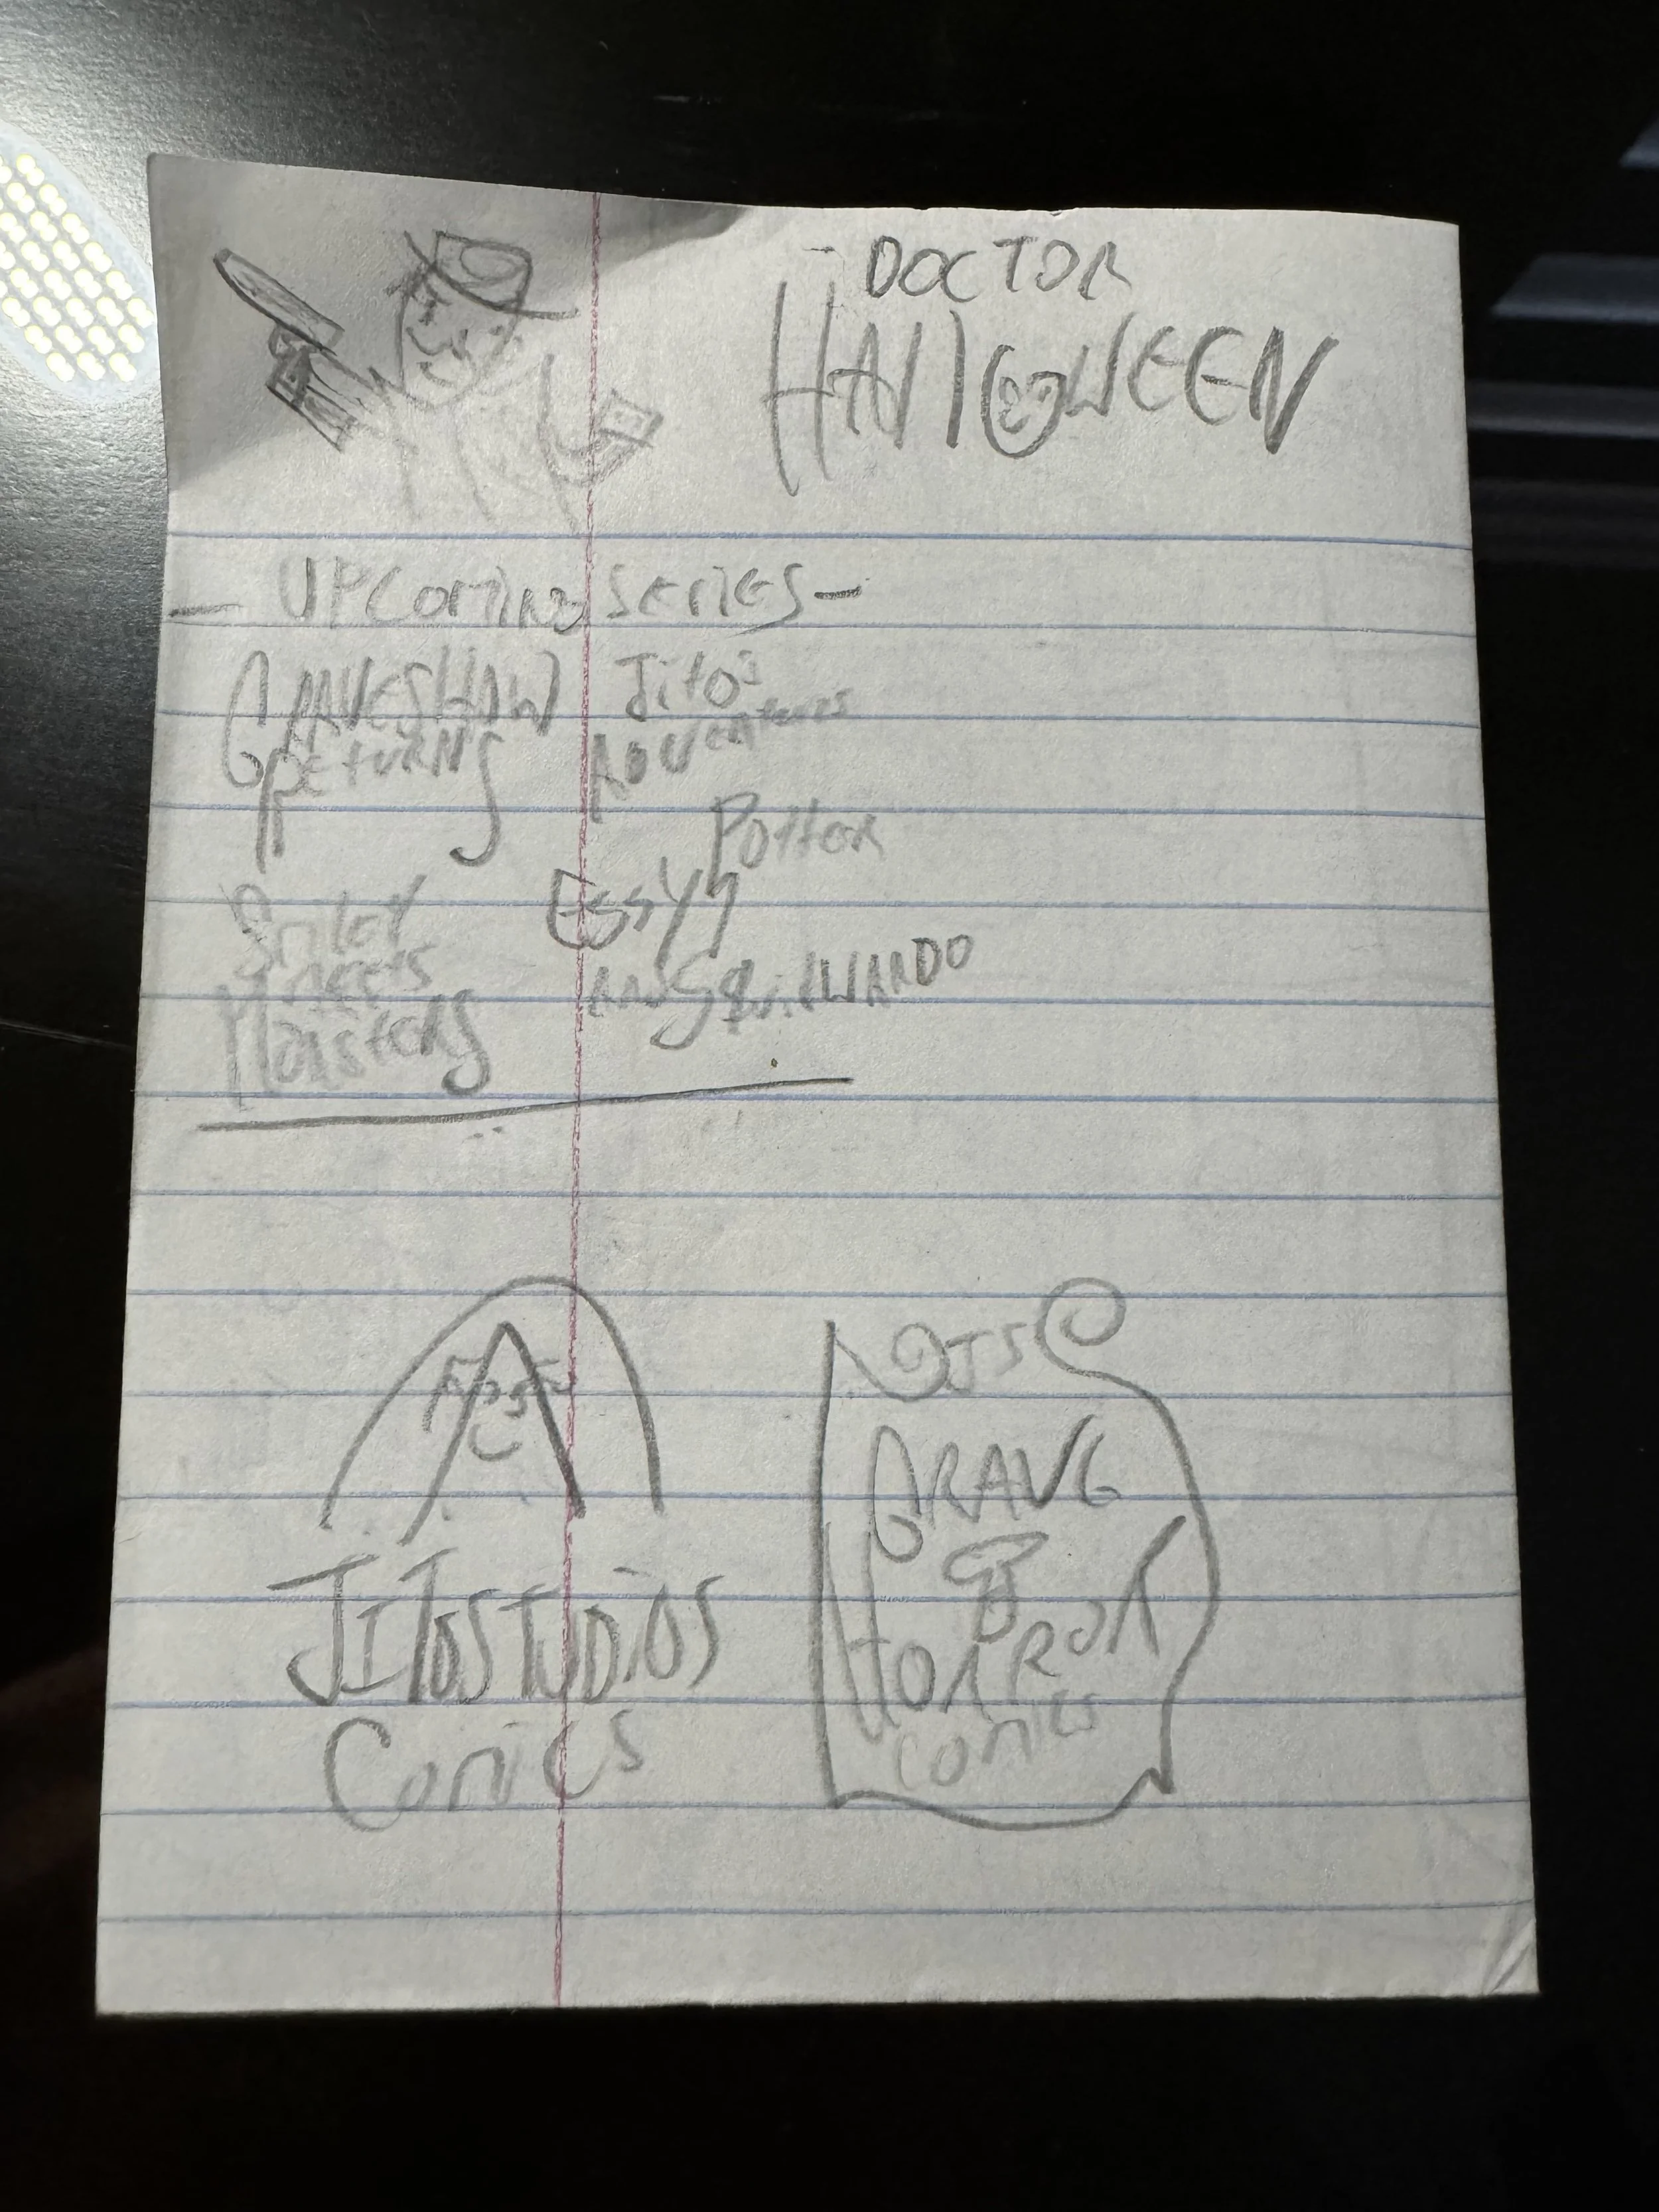 DOCTOR
HALLOWEEN
- UPComing SERIES -
GRAVESHAW
RETURNS
Jito's
ADVENTURES
Smiley
meets
Potter
Essy
AND SquilWARDO
JITOSTUDIOS
Comics
JTS
GRAVE
HORROR
comics